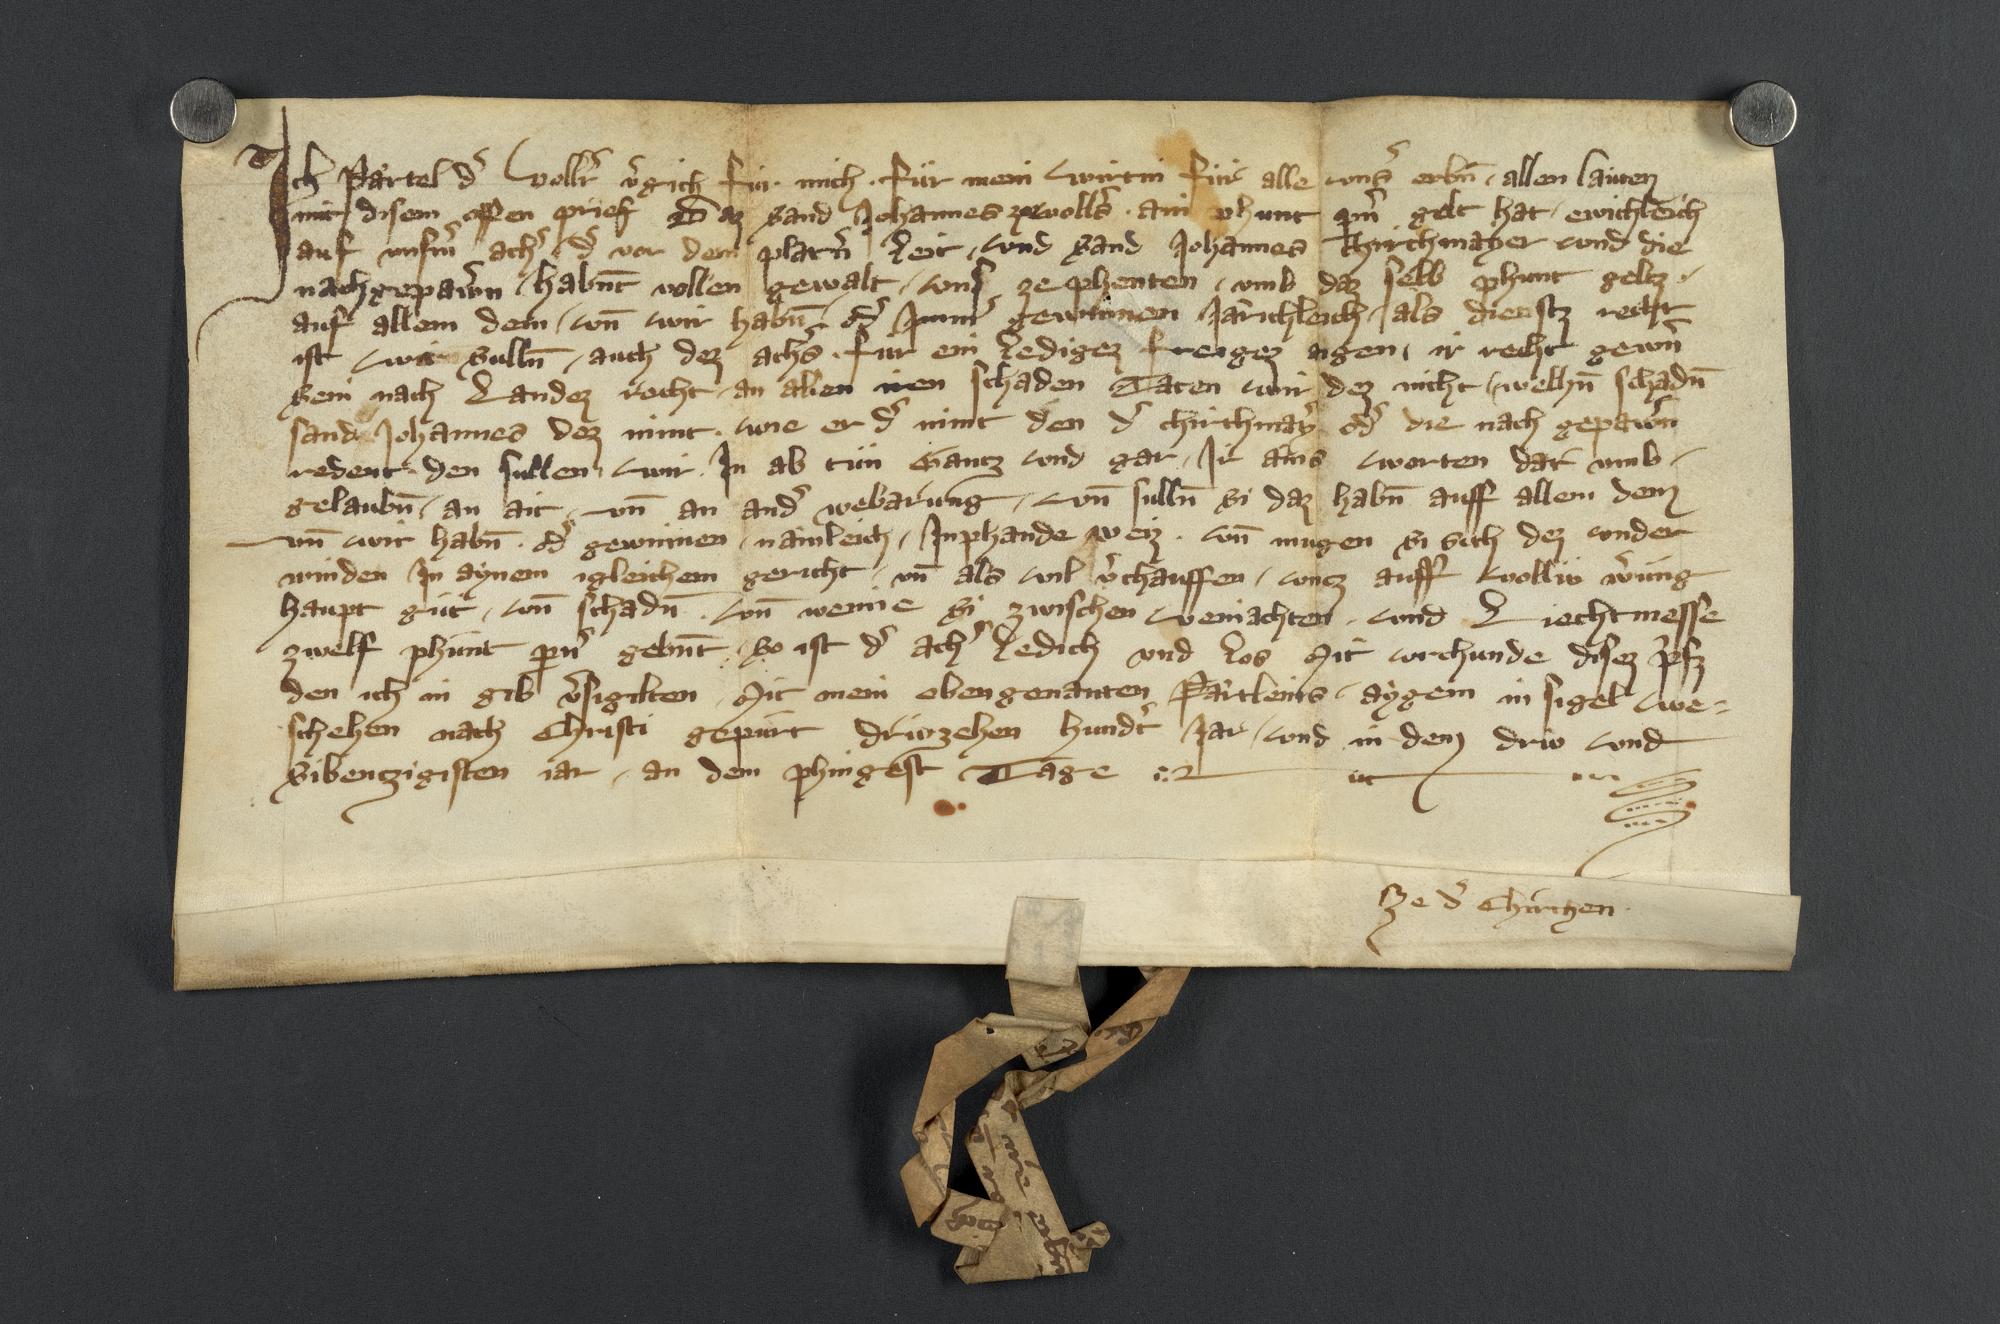 Ich Pärtel dˢ Vollˢ v̓gich für mich · für mein wirtin für alle vnsˢ erbn̄ · allen läuten
mit disem offen prief Daz sand Johannes ze vollˢ · ain phunt pn̄ˢ gelt hat · ewichleich
auf vnsm̄ achˢ dˢ vor dem platn̄ leit · vnd sand Johannes Chirchmayer vnd die
nachgepawrn · habn̄t vollen gewalt · vns ze phenten · vmb daz selb phunt geltz ·
auf allem dem · vn̄ wir habn̄ · odˢ Immˢ gewinnen Järichleich · als dienstz recht
ist wir sulln̄ · auch dez achˢs · für ein lediges freygez aigen · ir recht gewern̄
sein nach Landez recht · an allen iren schaden Täten wir dez nicht · welhn̄ schadn̄
sand Johannes dez nimt · wie er dˢ nimt den dˢ chirchmayˢ odˢ die nach gepawrn̄
redent · den sullen wir · In ab tün Gantz vnd gar · Ir ains worten dar vmb ·
gelaubn̄ · an ait · vn̄ an andˢ webarung · vn̄ sulln̄ si daz habn̄ auff allem dem
vn̄ wir habn̄ · odˢ gewinnen · nämleich · Inphande weiz · vn̄ mugen si sich dez vnder
winden In aynem igleichem gericht · vn̄ als vil v̓chauffen · vntz auff volliv w̓ung
haupt güt · vn̄ schadn̄ · vn̄ wenne si zwischen weinachten · vnd Liechtmesse
zwelf phunt pn̄ˢ gebnt̄ · so ist dˢ achˢ ledich vnd los Mit vrchunde disez pˢfz
den ich in gib v̓sigilten · Mit mein obengenanten Pärtleins · aygem in sigel · we=
schehen nach Christi gepurt driwzehen hundˢt Jar · vnd in dem driv vnd
sibentzigisten iar · an dem phingest Tage
Ze dˢ Chirichen